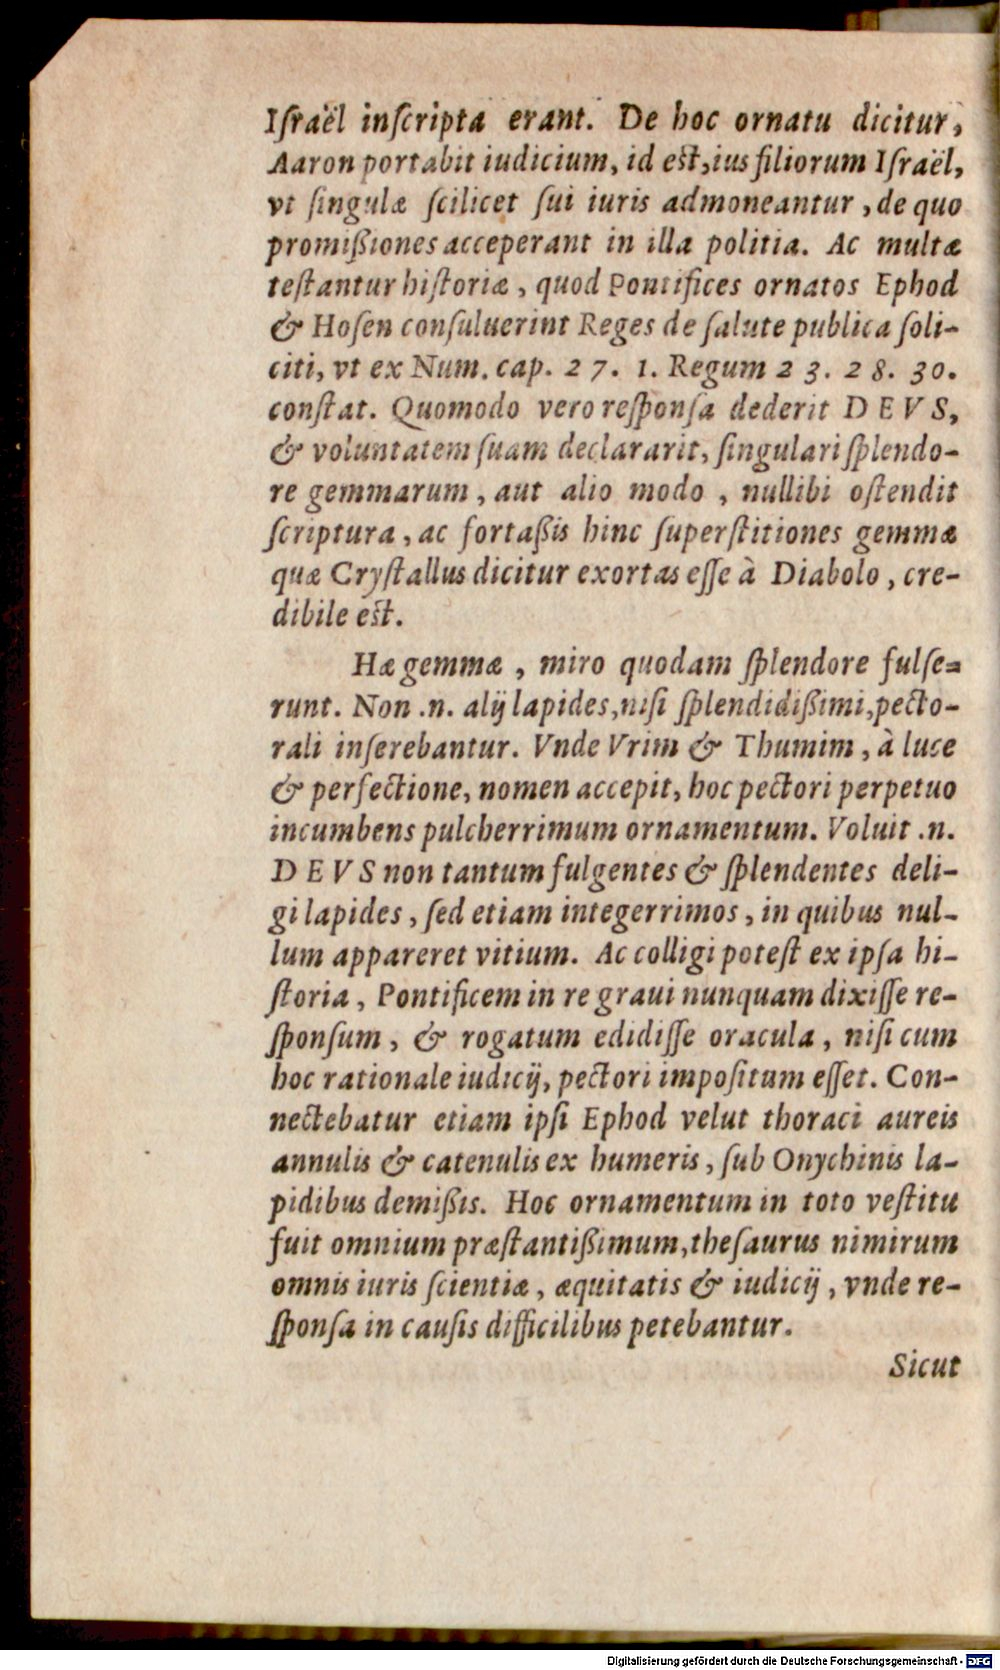 Iſraël inſcripta erant. De hoc ornatu dicitur,
Aaron portabit iudicium, id est, ius filiorum Iſraël,
vt ſingulæ ſcilicet ſui iuris admoneantur, de quo
promißiones acceperant in illa politia. Ac multæ
teſtantur hiſtoriæ, quod Pontifices ornatos Ephod
& Hoſen conſuluerint Reges de ſalute publica ſoli-
citi, vt ex Num. cap. 27. 1. Regum 23. 28. 30.
conſtat. Quomodo vero reſponſa dederit DEVS,
& voluntatem ſuam declararit, ſingulari ſplendo-
re gemmarum, aut alio modo, nullibi oſtendit
ſcriptura, ac fortaßis hinc ſuperſtitiones gemmæ
quæ Cryſtallus dicitur exortas eſſe à Diabolo, cre-
dibile est.
Hæ gemmæ, miro quodam ſplendore fulſe-
runt. Non .n. alij lapides, niſi ſplendidißimi, pecto-
rali inſerebantur. Vnde Vrim & Thumim, à luce
& perfectione, nomen accepit, hoc pectori perpetuo
incumbens pulcherrimum ornamentum. Voluit .n.
DEVS non tantum fulgentes & ſplendentes deli-
gi lapides, ſed etiam integerrimos, in quibus nul-
lum appareret vitium. Ac colligi poteſt ex ipſa hi-
ſtoria, Pontificem in re graui nunquam dixiſſe re-
ſponſum, & rogatum edidiſſe oracula, niſi cum
hoc rationale iudicij, pectori impoſitum eſſet. Con-
nectebatur etiam ipſi Ephod velut thoraci aureis
annulis & catenulis ex humeris, ſub Onychinis la-
pidibus demißis. Hoc ornamentum in toto veſtitu
fuit omnium præſtantißimum, theſaurus nimirum
omnis iuris ſcientiæ, æquitatis & iudicij, vnde re-
ſponſa in cauſis difficilibus petebantur.
Sicut
Digitalisierung gefördert durch die Deutsche Forschungsgemeinschaft - DFG